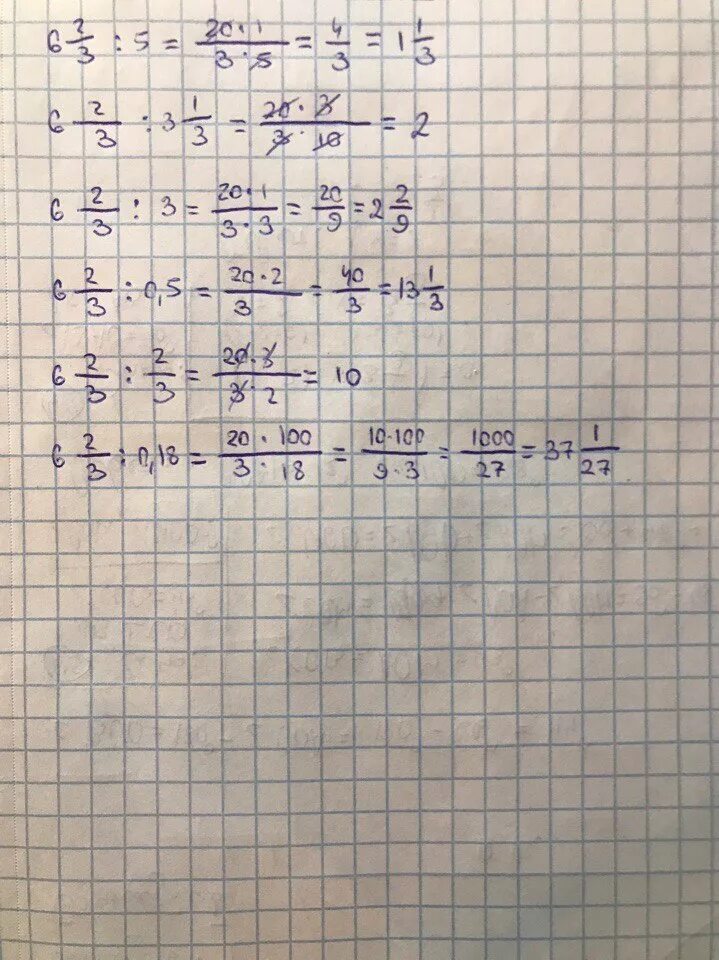 6 2/3 : 5 = (20 · 1)/(3 · 5) = 4/3 = 1 1/3
6 2/3 : 3 1/3 = (20 · 3)/(3 · 10) = 2
6 2/3 : 3 = (20 · 1)/(3 · 3) = 20/9 = 2 2/9
6 2/3 : 0,5 = (20 · 2)/3 = 40/3 = 13 1/3
6 2/3 : 2/3 = (20 · 3)/(3 · 2) = 10
6 2/3 : 0,18 = (20 · 100)/(3 · 18) = (10 · 100)/(9 · 3) = 1000/27 = 37 1/27